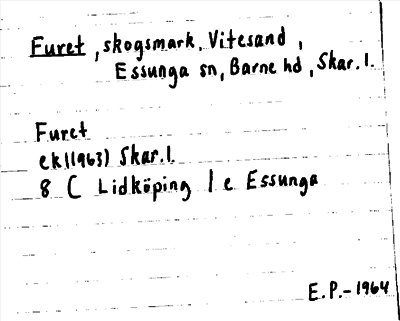 Furet, skogsmark, Vitesand,
Essunga sn, Barne hd, Skar.l.
Furet
ek(1963) Skar.l.
8 C Lidköping l e Essunga
E.P.-1964